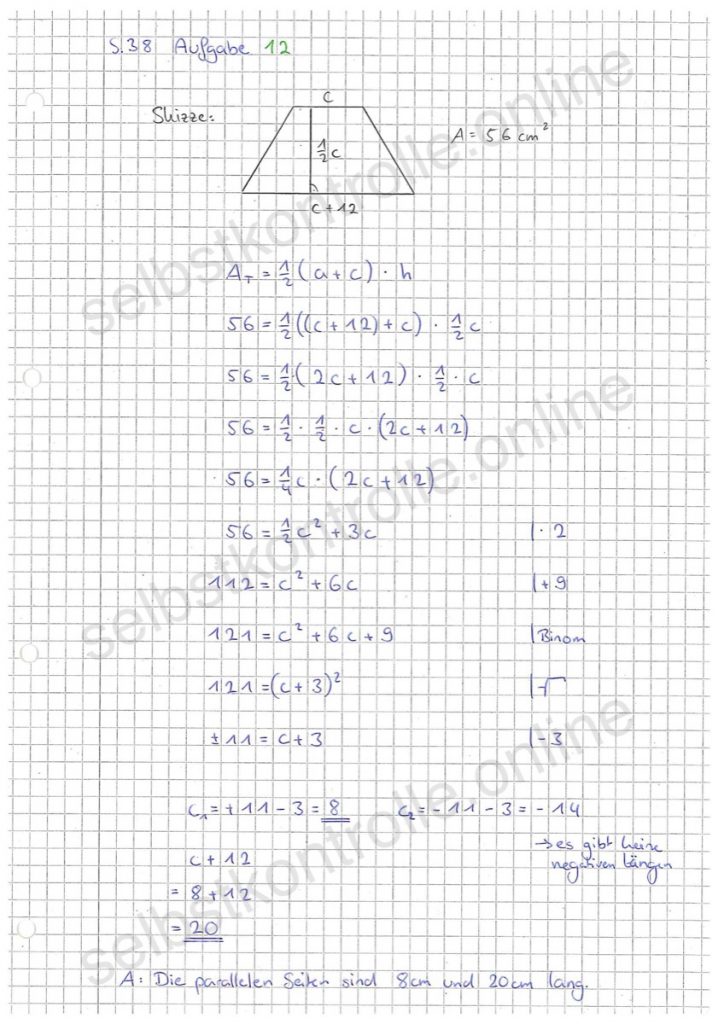 S.38 Aufgabe 12
Skizze:
c
A = 56 cm²
½c
c + 12
A_T = ½(a + c) · h
56 = ½((c + 12) + c) · ½c
56 = ½(2c + 12) · ½ · c
56 = ½ · ½ · c · (2c + 12)
56 = ¼c · (2c + 12)
56 = ½c² + 3c |· 2
112 = c² + 6c |+9
121 = c² + 6c + 9 |Binom
121 = (c + 3)² |√
±11 = c + 3 |-3
c₁ = +11 - 3 = 8 c₂ = -11 - 3 = -14
→ es gibt keine
negativen Längen
c + 12
= 8 + 12
= 20
A: Die parallelen Seiten sind 8cm und 20cm lang.
selbstkontrolle.online
selbstkontrolle.online
selbstkontrolle.online